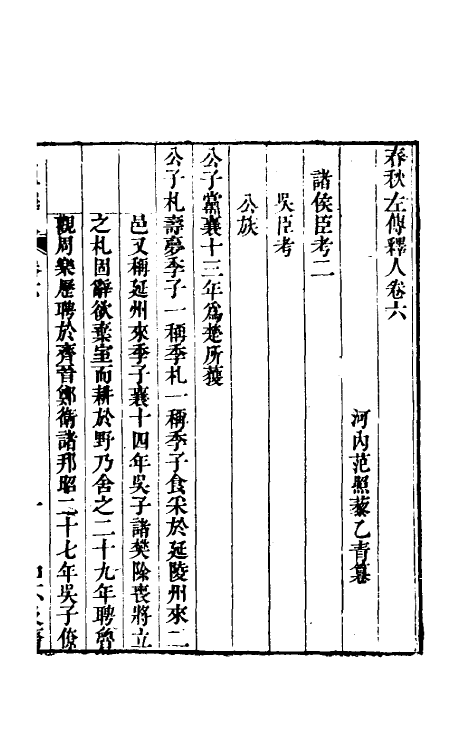 春秋左傳釋人卷六
河內范照藜乙青纂
諸侯臣考二
吳臣考
公族
公子黨襄十三年爲楚所獲
公子札壽夢季子一稱季札一稱季子食采於延陵州來二
邑又稱延州來季子襄十四年吳子諸樊除喪將立
之札固辭欲棄室而耕於野乃舍之二十九年聘魯
觀周樂歷聘於齊晉鄭衛諸邦昭二十七年吳子僚